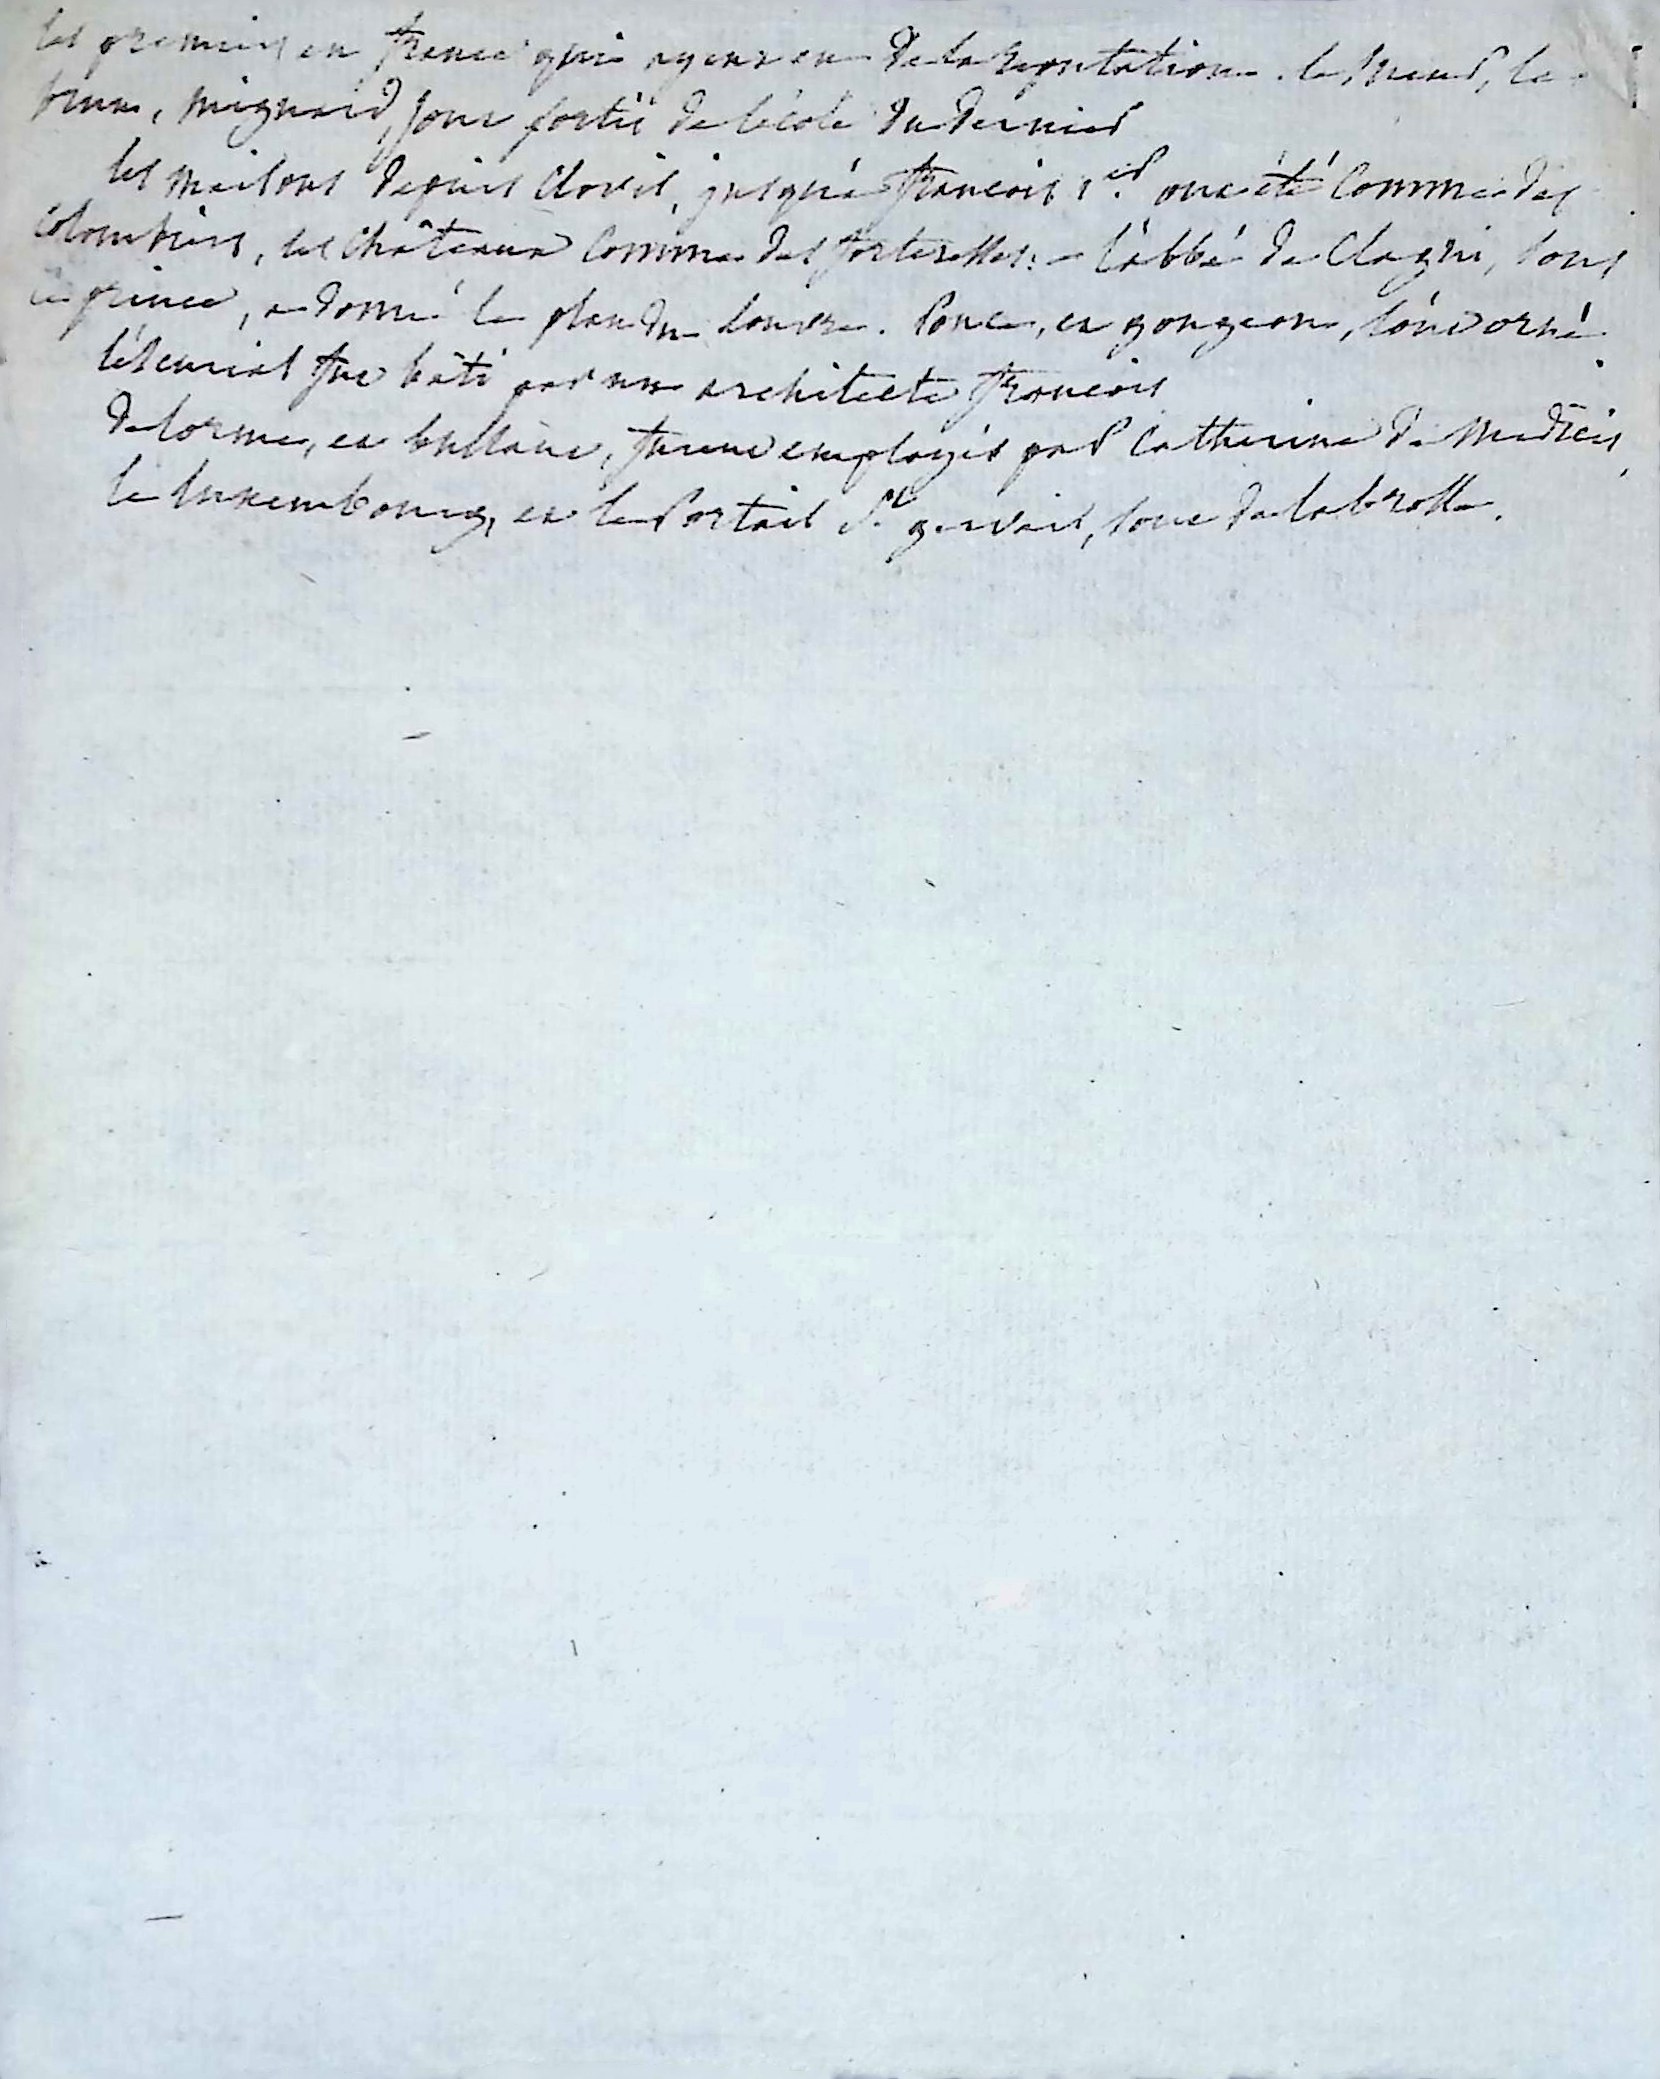 les premiers en france qui ayent eu de la reputation. le sueur, le
brun, mignard, sont sortis de l'école du dernier
les maisons depuis Clovis, jusqu'a françois 1.er ont été comme des
colombiers, les châteaux comme des forteresses. l'abbé de Clagni, sous
ce prince, a donné le plan du louvre. Ponce, et gougeon, l'ont orné
l'éscurial fut bâti par un architecte françois
delorme, et bullant, furent employés par Catherine de Medicis,
le luxembourg, et le Portail St gervais, sont de la brosse.